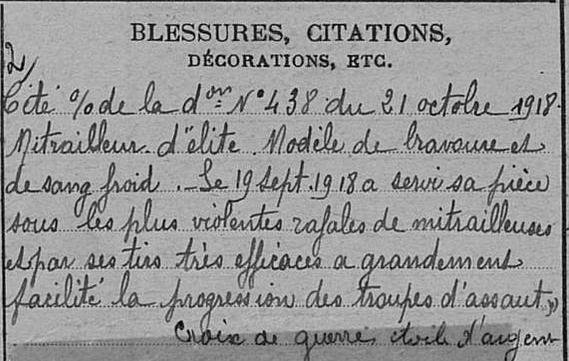 BLESSURES, CITATIONS,
DÉCORATIONS, ETC.
2/
Cité % de la don N° 438 du 21 octobre 1918.
Mitrailleur d'élite. Modèle de bravoure et
de sang froid. - Le 19 sept. 1918 a servi sa pièce
sous les plus violentes rafales de mitrailleuses
et par ses tirs très efficaces a grandement
facilité la progression des troupes d'assaut »
Croix de guerre étoile d'argent